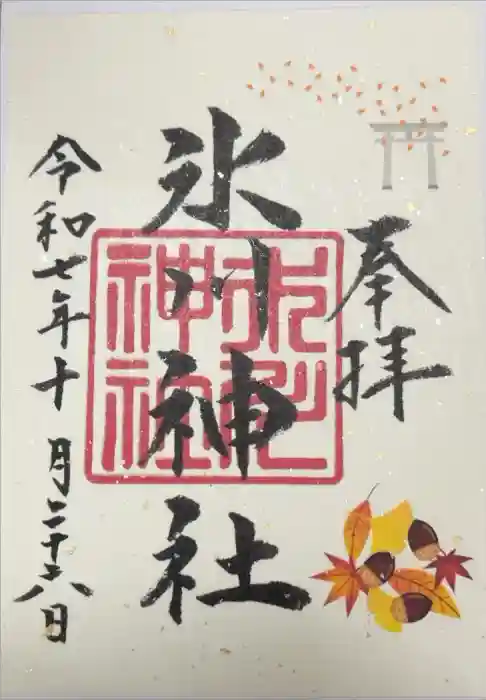 奉拝
氷川神社
氷川神社
令和七年十月二十六日